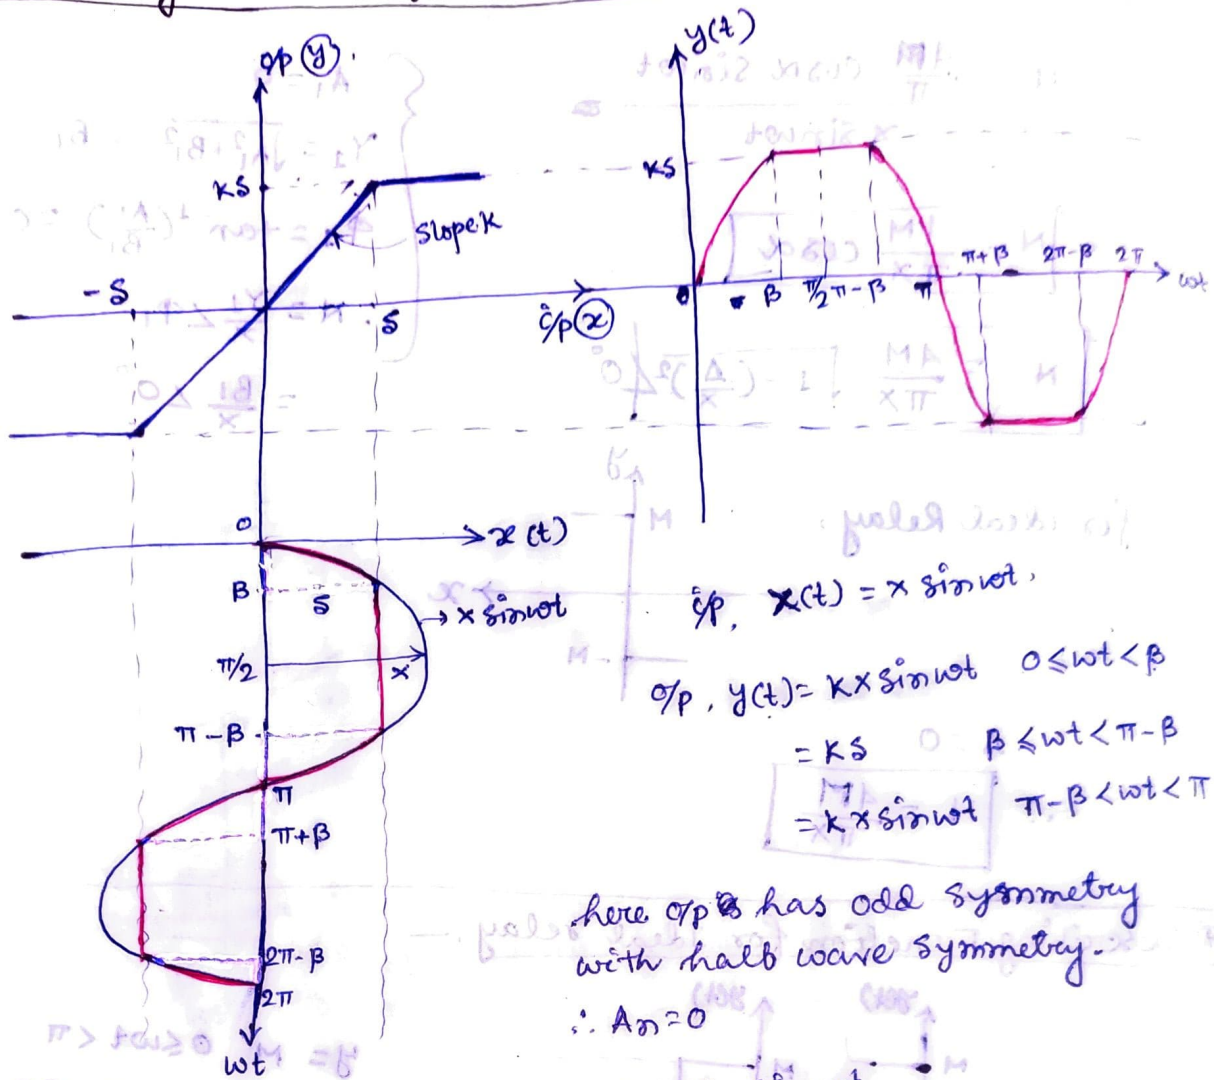 o/p (y).
KS
slope K
-S
S
i/p (x)
y(t)
KS
0
β
π/2
π-β
π
π+β
2π-β
2π
wt
0
x(t)
β
S
x sinwt
π/2
x
π-β
π
π+β
2π-β
2π
wt
i/p, x(t) = x sinwt,
o/p, y(t) = Kx sinwt 0≤wt<β
= KS β≤wt<π-β
= Kx sinwt π-β<wt<π
here o/p has odd symmetry
with half wave symmetry.
∴ An=0